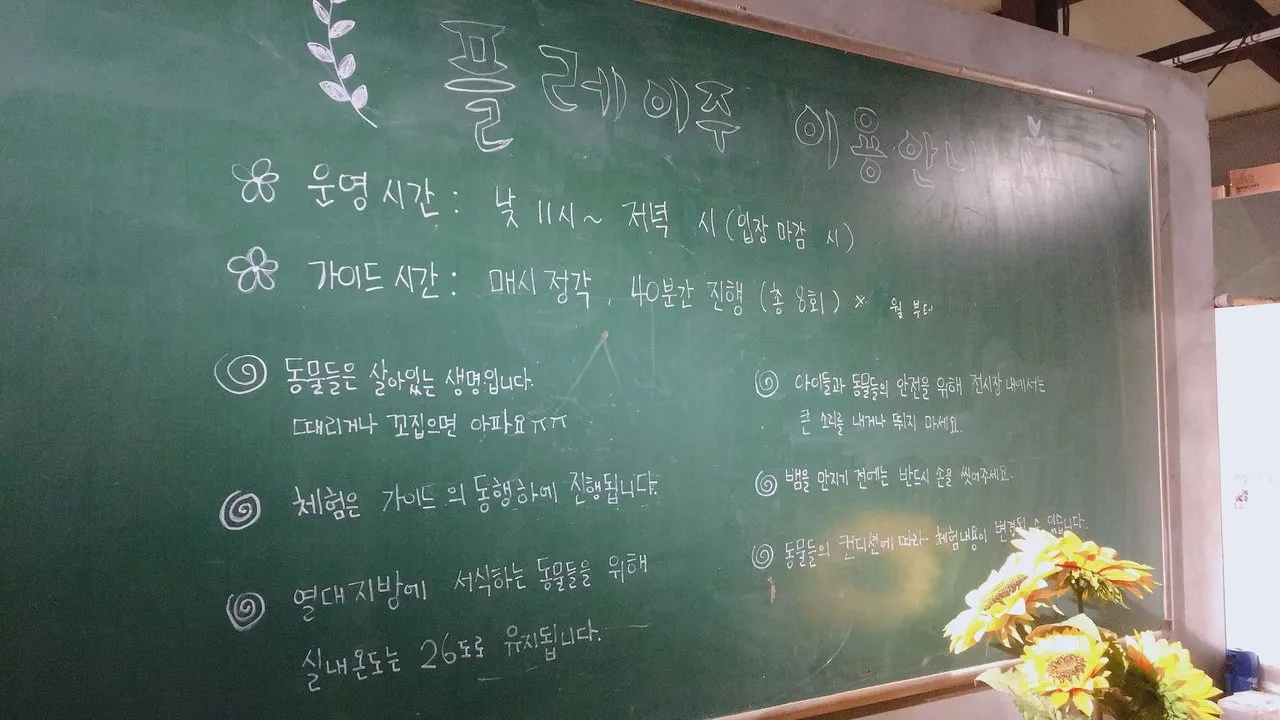 플레이주 이용안내
운영시간 : 낮 11시 ~ 저녁 시 (입장 마감 시)
가이드 시간 : 매시 정각, 40분간 진행 (총 8회) * 월 부터
동물들은 살아있는 생명입니다.
때리거나 꼬집으면 아파요ㅠㅠ
체험은 가이드의 동행하에 진행됩니다.
열대지방에 서식하는 동물들을 위해
실내온도는 26도로 유지됩니다.
아이들과 동물들의 안전을 위해 전시장 내에서는
큰 소리를 내거나 뛰지 마세요.
뱀을 만지기 전에는 반드시 손을 씻어주세요.
동물들의 컨디션에 따라 체험내용이 변경될 수 있습니다.